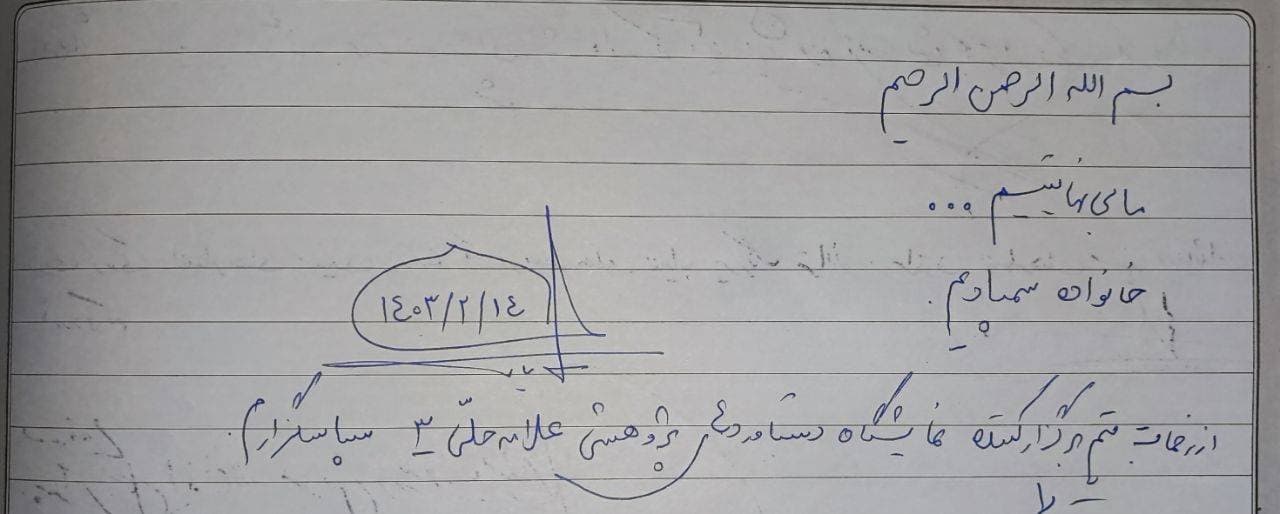 بسم الله الرحمن الرحیم
ما بی نهایتیم ...
خانواده سمپادیم.
۱۴۰۳/۲/۱۴
از زحمات تیم برگزارکننده نمایشگاه دستاوردهای پژوهشی علامه حلّی ۳ سپاسگزارم.